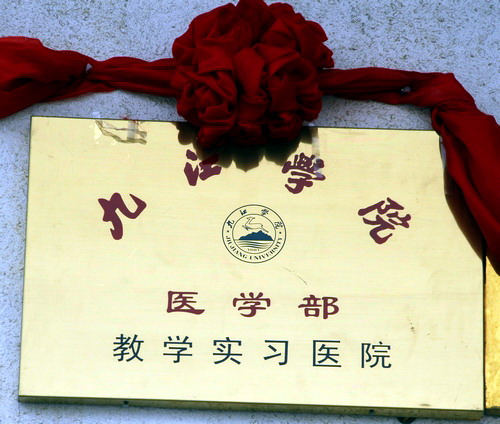 九江学院
九江学院
JIUJIANG UNIVERSITY
医学部
教学实习医院